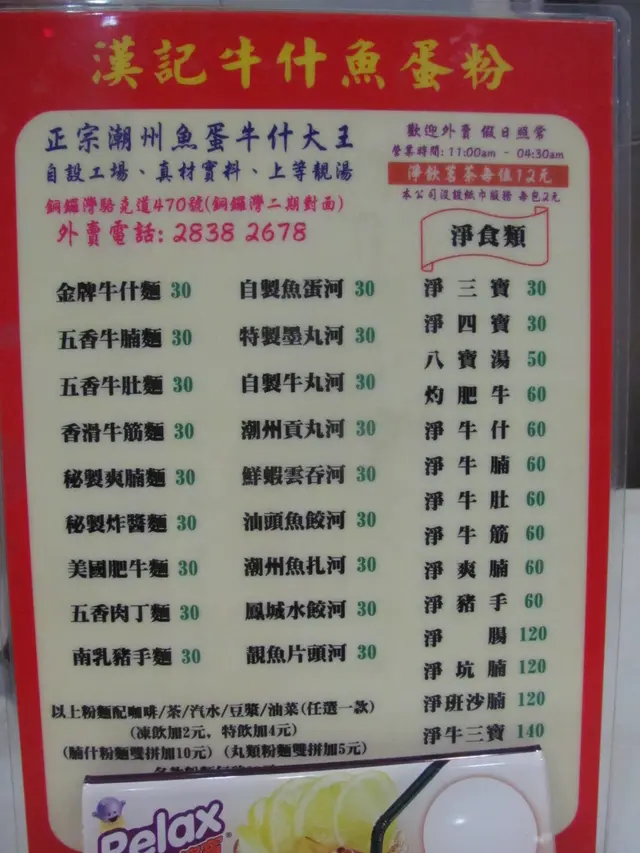 漢記牛什魚蛋粉
正宗潮州魚蛋牛什大王
自設工場、真材實料、上等靚湯
銅鑼灣駱克道470號(銅鑼灣二期對面)
外賣電話: 2838 2678
歡迎外賣 假日照常
營業時間: 11:00am - 04:30am
淨飲茗茶每位12元
本公司沒設紙巾服務 每包2元
金牌牛什麵 30
五香牛腩麵 30
五香牛肚麵 30
香滑牛筋麵 30
秘製爽腩麵 30
秘製炸醬麵 30
美國肥牛麵 30
五香肉丁麵 30
南乳豬手麵 30
自製魚蛋河 30
特製墨丸河 30
自製牛丸河 30
潮州貢丸河 30
鮮蝦雲吞河 30
汕頭魚餃河 30
潮州魚扎河 30
鳳城水餃河 30
靚魚片頭河 30
淨食類
淨三寶 30
淨四寶 30
八寶湯 50
灼肥牛 60
淨牛什 60
淨牛腩 60
淨牛肚 60
淨牛筋 60
淨爽腩 60
淨豬手 60
淨腸 120
淨坑腩 120
淨班沙腩 120
淨牛三寶 140
以上粉麵配咖啡/茶/汽水/豆漿/油菜(任選一款)
(凍飲加2元, 特飲加4元)
(腩什粉麵雙拼加10元) (丸類粉麵雙拼加5元)
Relax